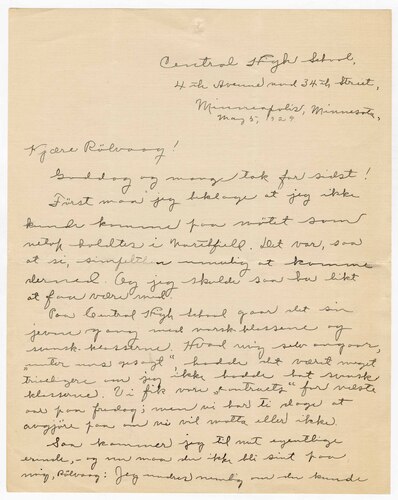 Central High School,
4th Avenue and 34th Street,
Minneapolis, Minnesota,
May 5, 1929
Kjære Rölvaag!
Goddag og mange tak for sidst!
Först maa jeg beklage at jeg ikke
kunde komme paa mötet som
netop holdtes i Northfield. Det var, saa
at si, simpelthen umulig at komme
dermed. Og jeg skulde saa ha likt
at faa være med.
Paa Central High School gaar det sin
jevne gang med norsk-klasserne og
svensk-klasserne. Hvad mig selv angaar,
"unter uns gesagt" hadde det været meget
triveligere om jeg ikke hadde hat svensk
klasserne. Vi fik vore "contracts" for næste
aar paa fredag; men vi har ti dage at
avgjöre paa om vi vil motta eller ikke.
Saa kommer jeg til mit egentlige
erende, og nu maa du ikke bli sint paa
mig, Rölvaag: Jeg undres nemlig om du kunde